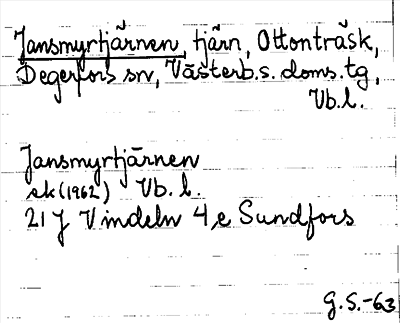 Jansmyrtjärnen, tjärn, Ottonträsk,
Degerfors sn, Västerb.s. doms.tg,
Vb.l.
Jansmyrtjärnen
ek (1962) Vb. l.
21 J Vindeln 4,e Sundfors
G.S.-63